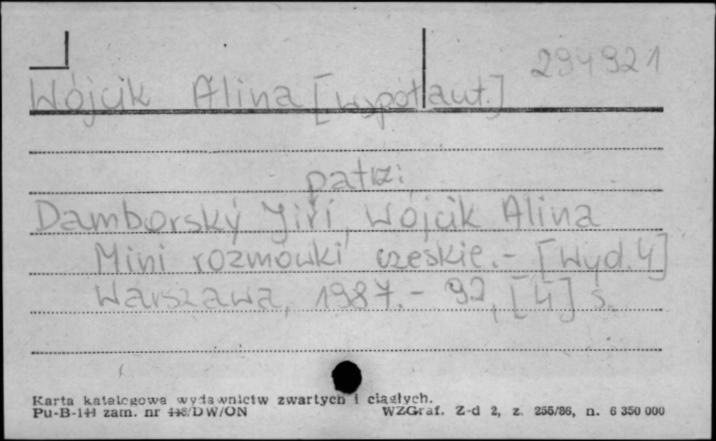 294921
Wójcik Alina [współaut.]
patrz:
Damborský Jiří, Wójcik Alina
Mini rozmówki czeskie.- [Wyd.4]
Warszawa, 1987.- 92, [4] s.
Karta katalogowa wydawnictw zwartych i ciągłych.
Pu-B-144 zam. nr /DW/ON WZGraf. Z-d 2, z. 255/86, n. 6 350 000